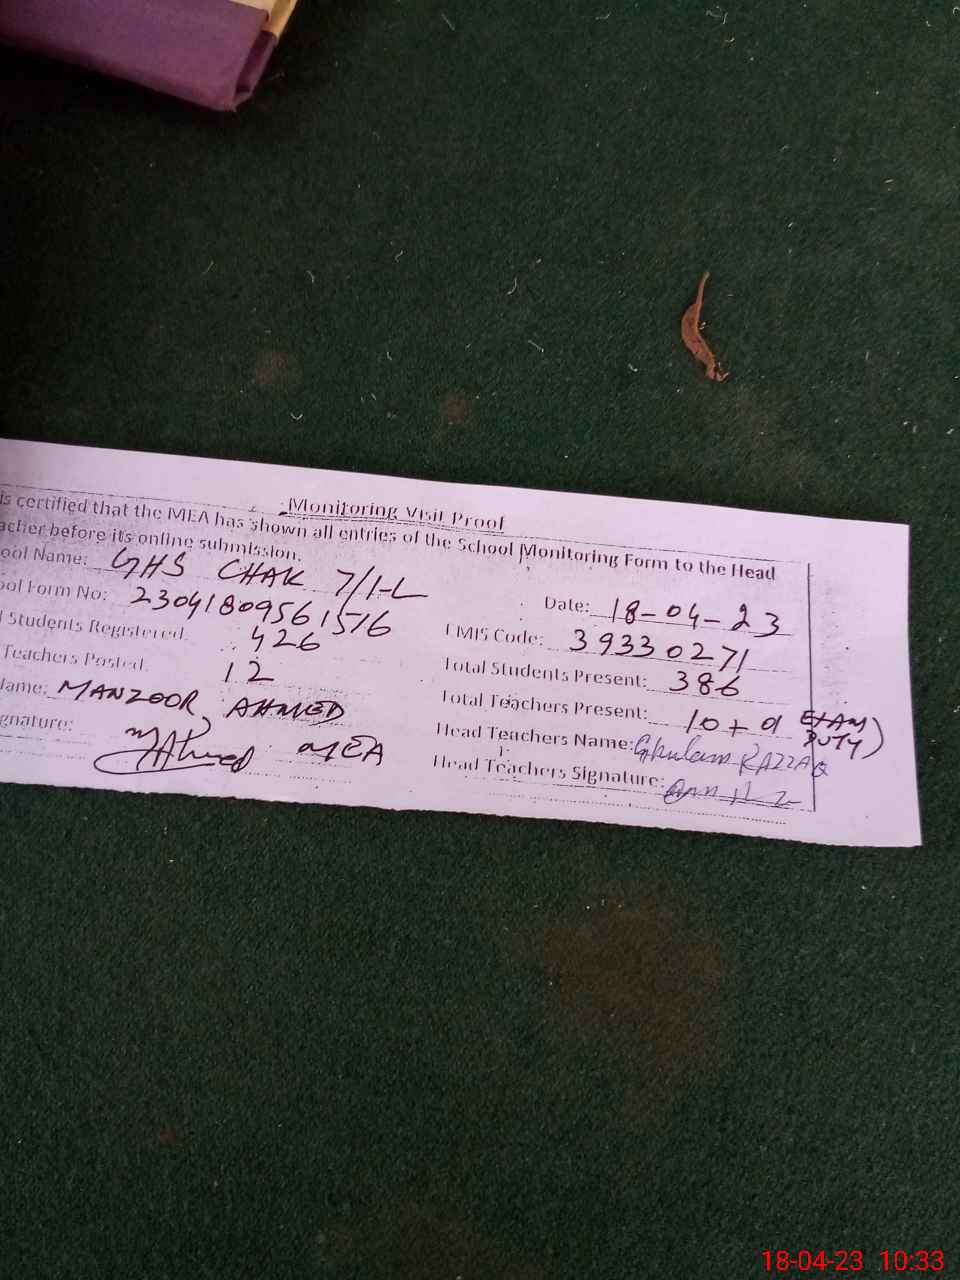 Monitoring Visit Proof
is certified that the MEA has shown all entries of the School Monitoring Form to the Head
acher before its online submission.
ool Name: GHS CHAK 7/1-L
Date: 18-04-23
ool Form No: 23041809561576
EMIS Code: 39330271
l Students Registered 426
Total Students Present: 386
Teachers Posted 12
Total Teachers Present: 10+ EXAM DUTY)
Name: MANZOOR AHMED
Head Teachers Name: Ghulam RAZZAQ
gnature: MAhmed MEA
Head Teachers Signature:
18-04-23 10:33